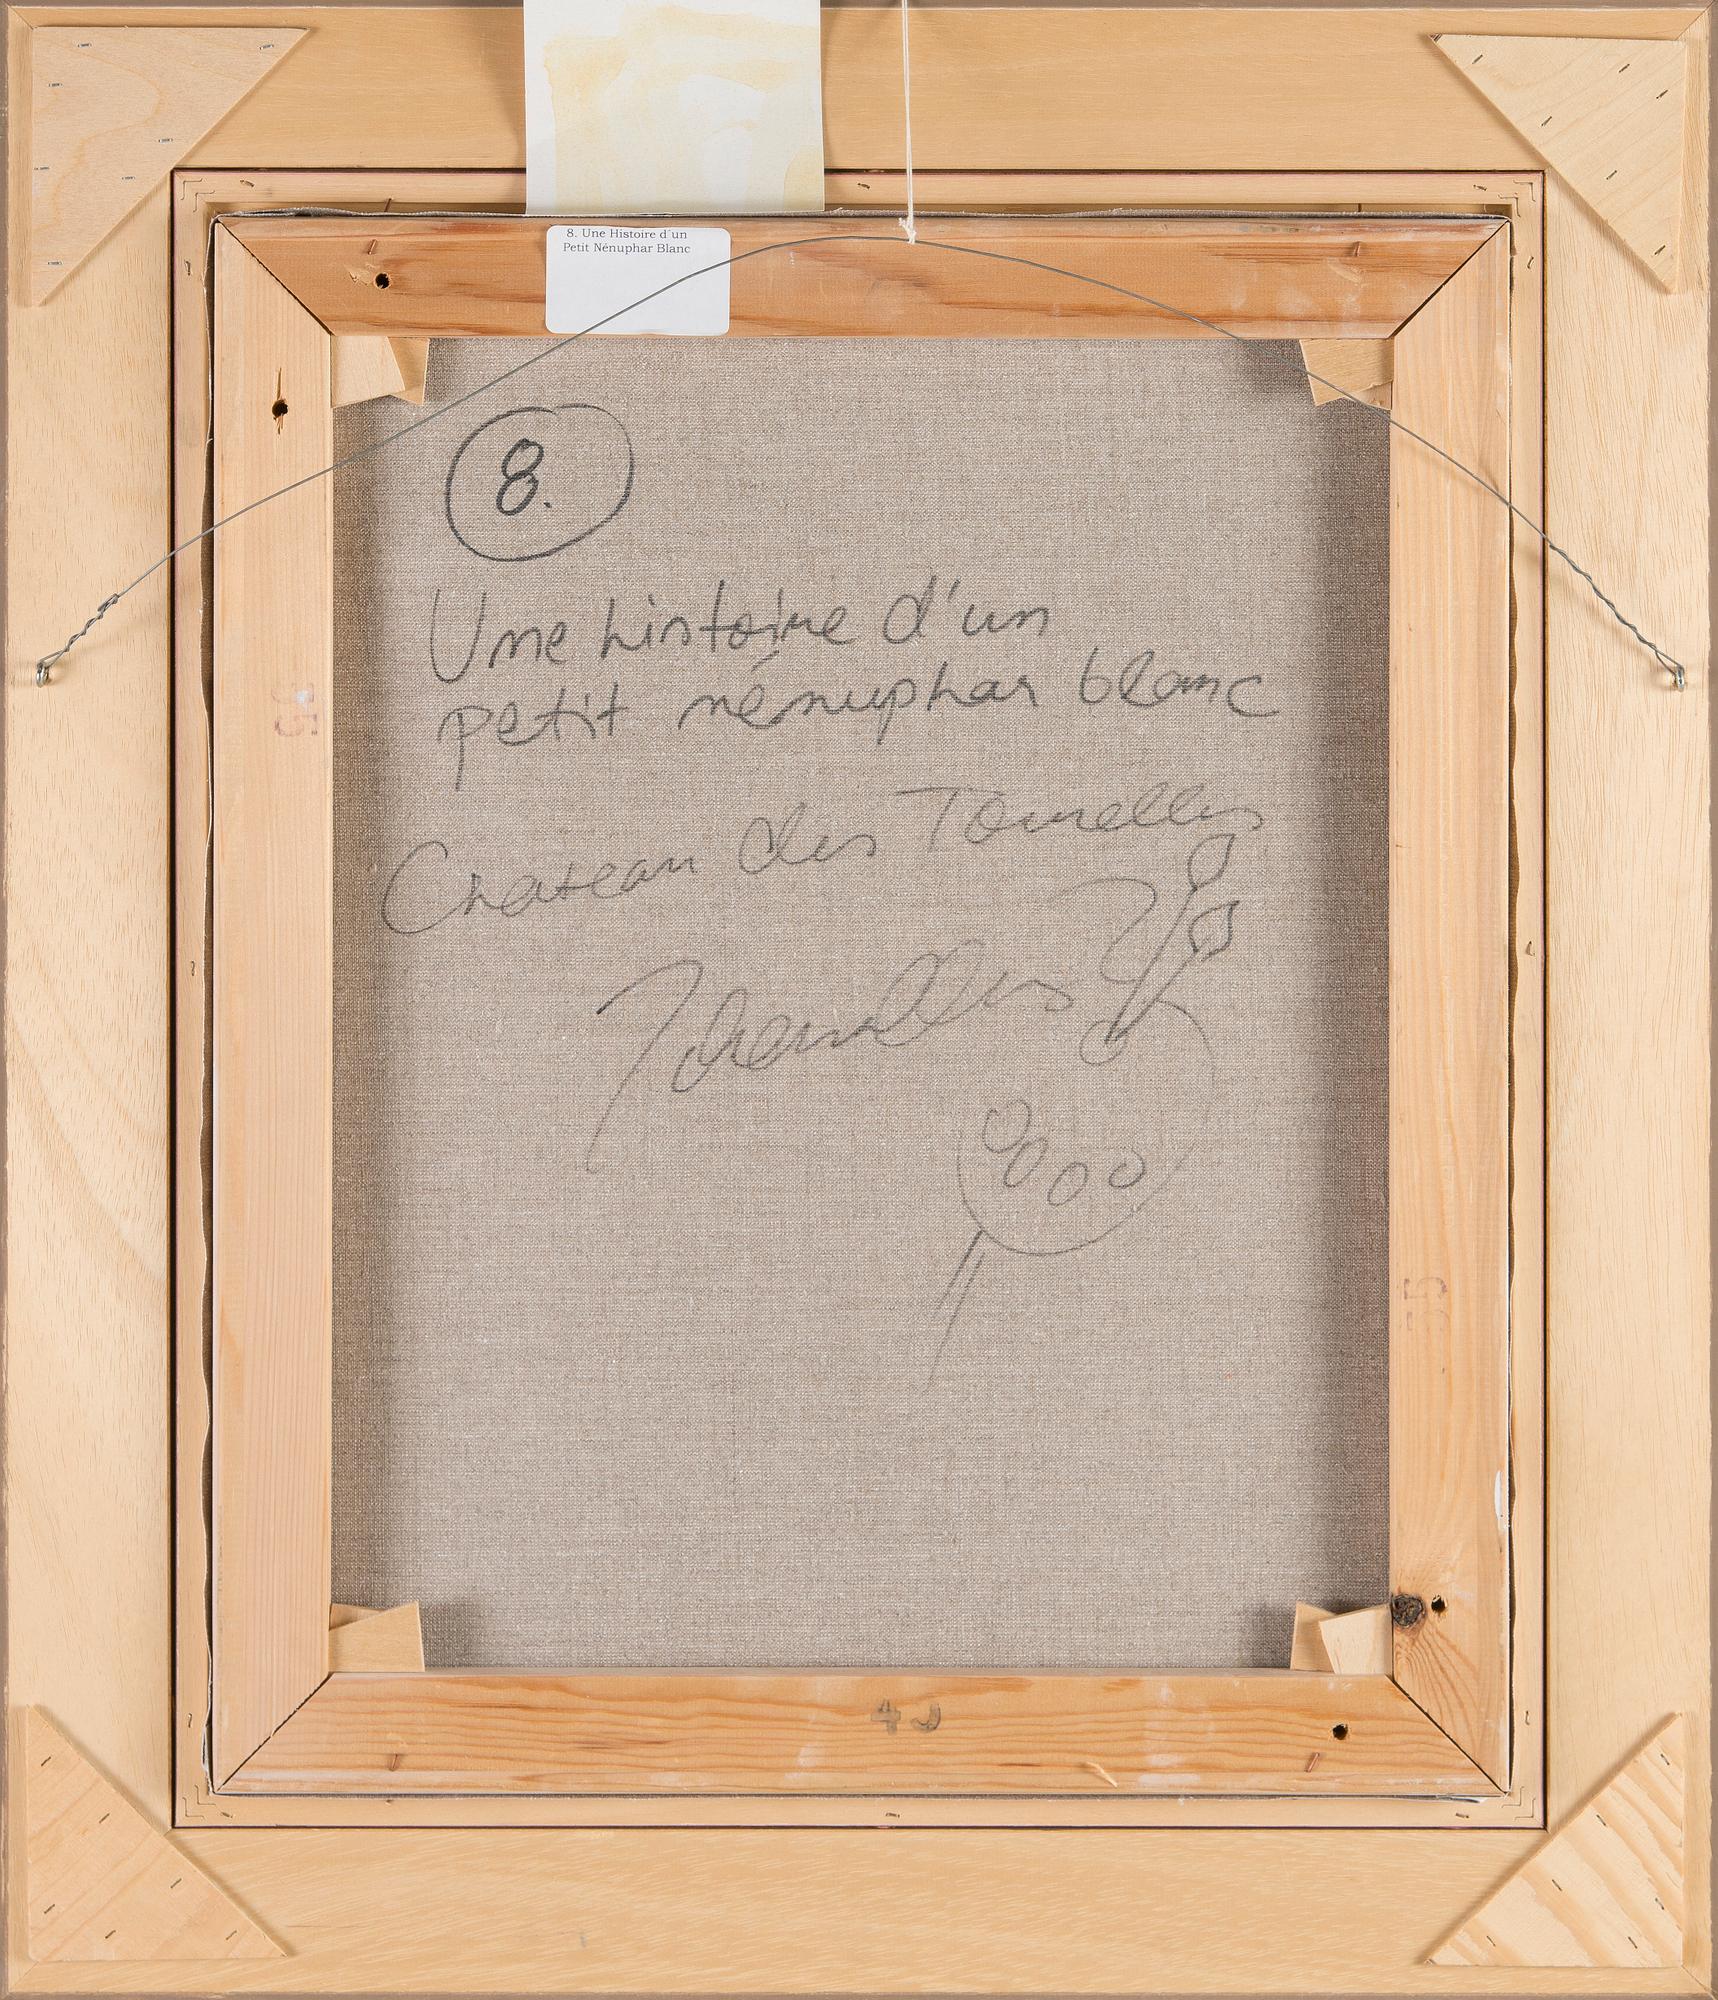 8. Une Histoire d'un
Petit Nénuphar Blanc
8.
Une histoire d'un
petit nénuphar blanc
Chateau des Tourelles
55
55
40